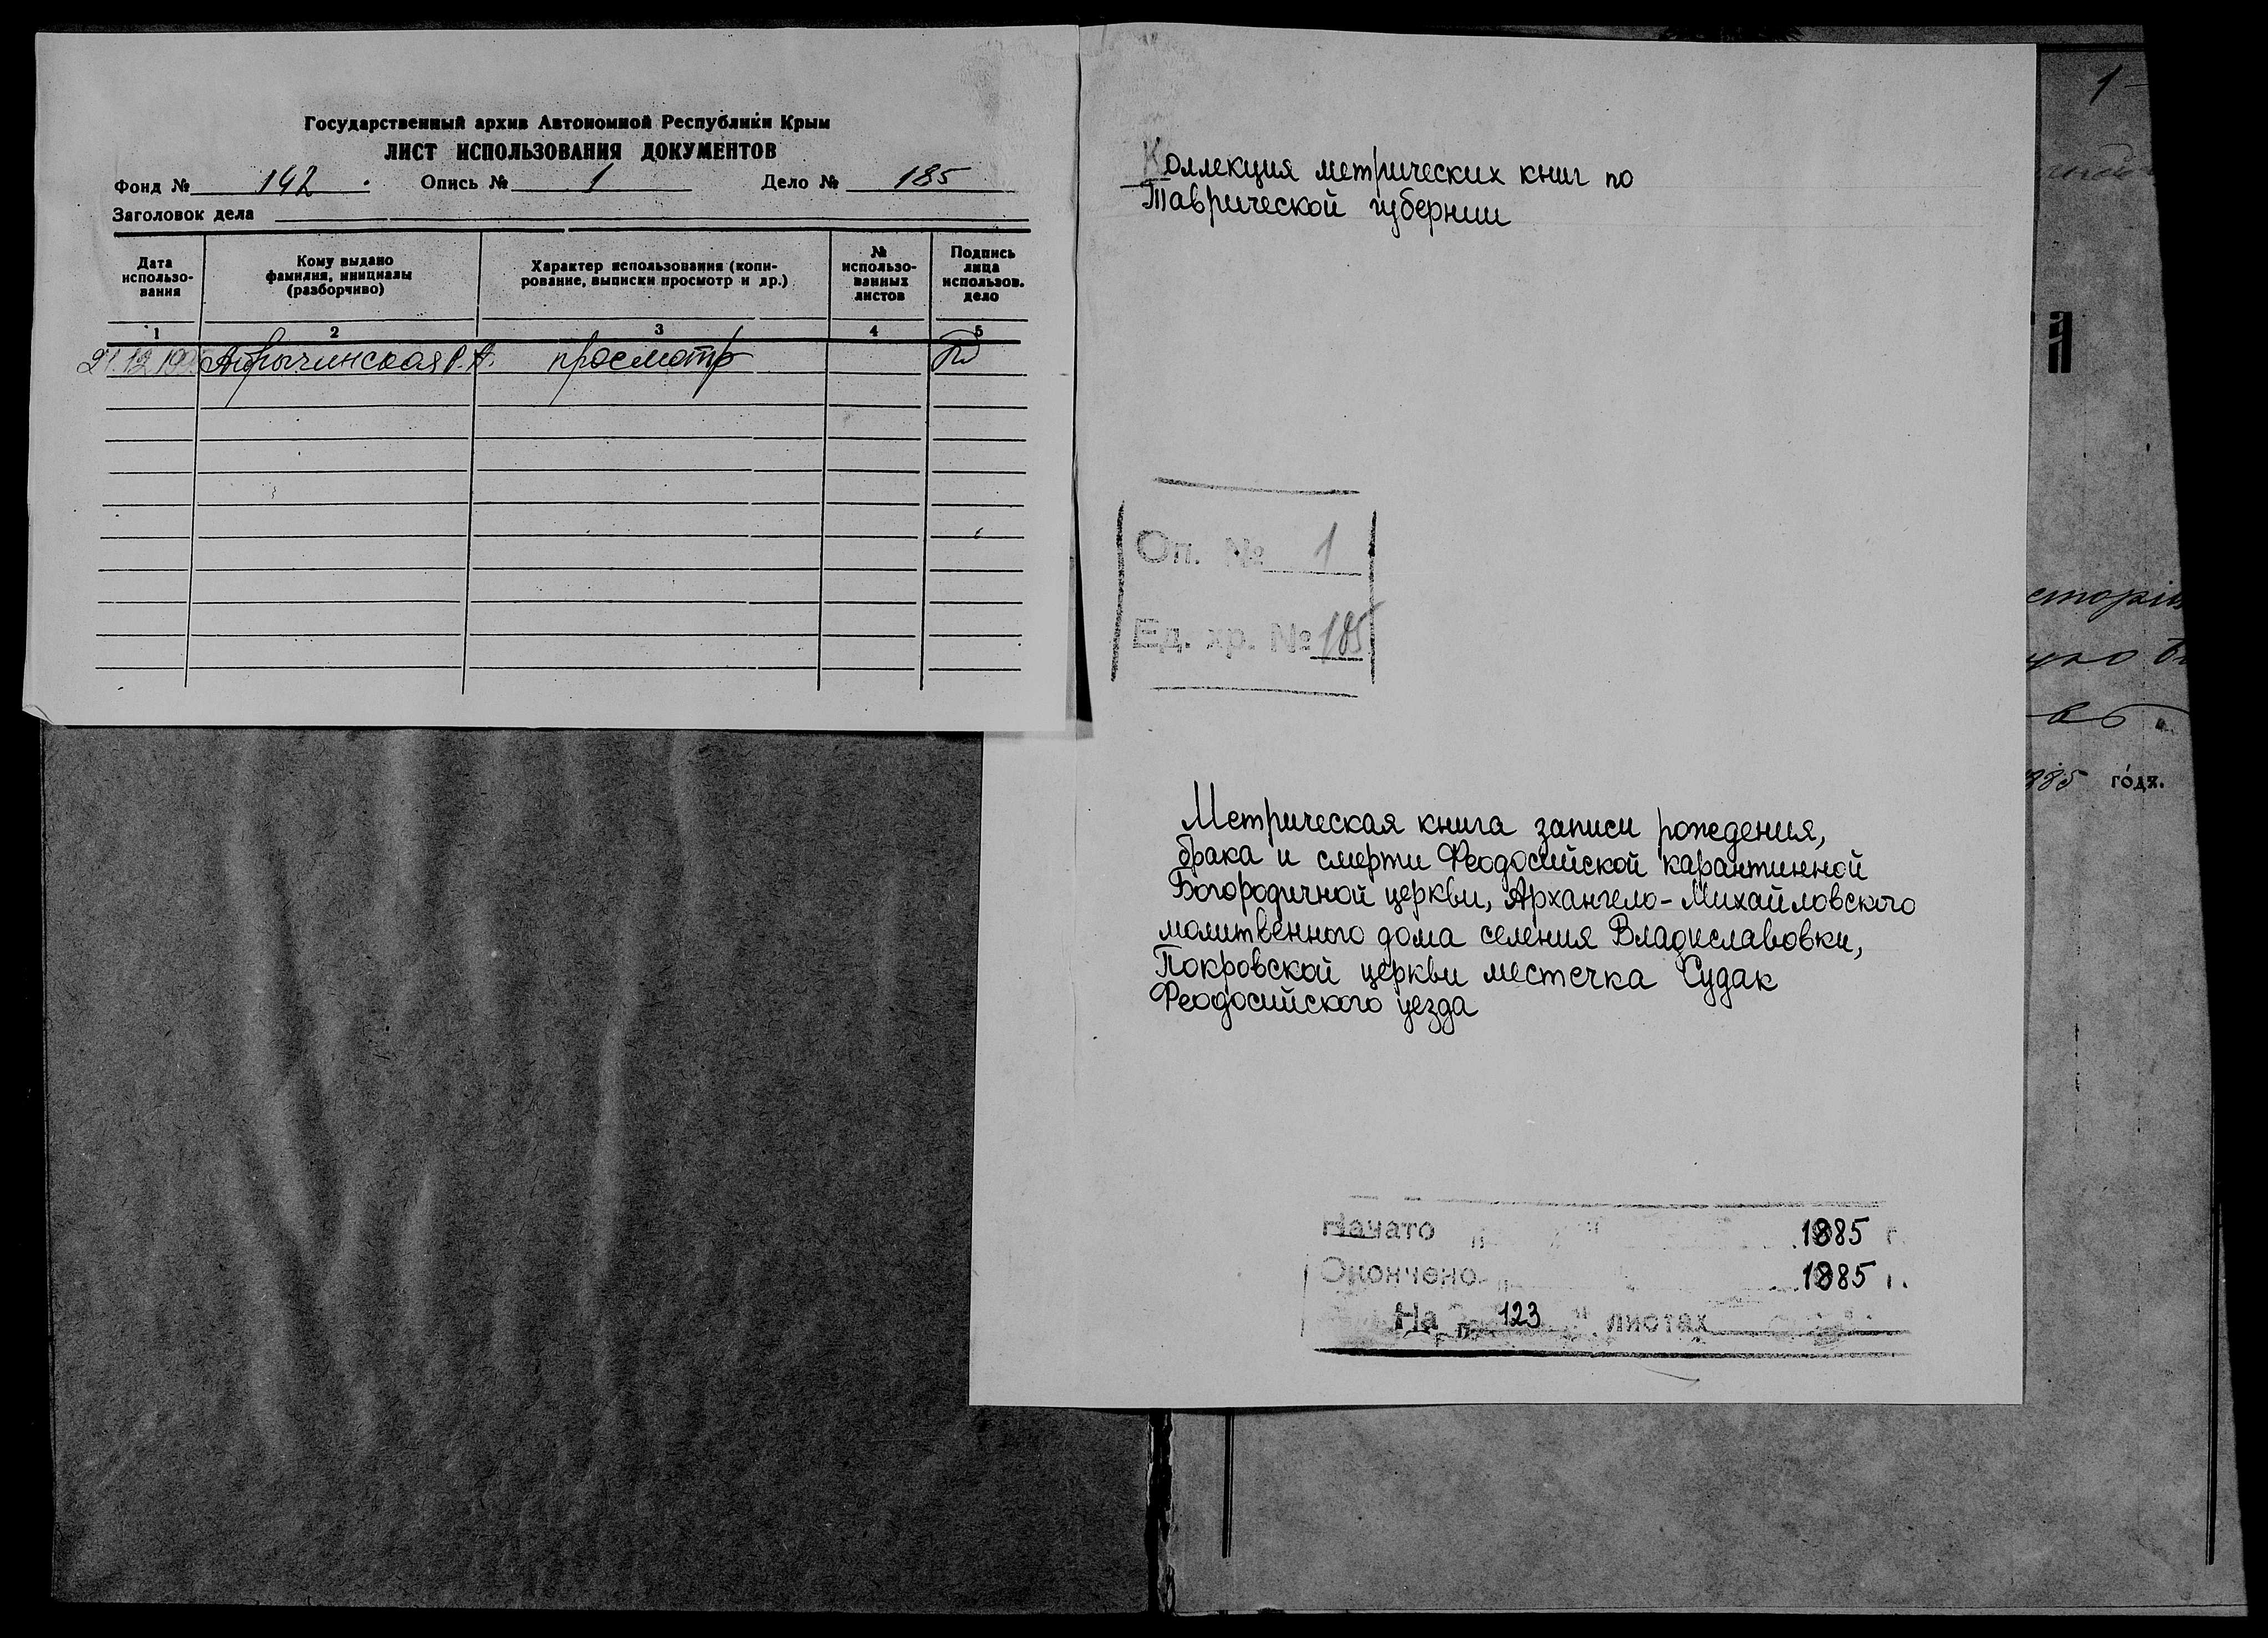 Государственный архив Автономной Республики Крым
ЛИСТ ИСПОЛЬЗОВАНИЯ ДОКУМЕНТОВ
Фонд № 142. Опись № 1 Дело № 185
Заголовок дела
Дата использо-вания
Кому выдано фамилия, инициалы (разборчиво)
Характер использования (копи-рование, выписки просмотр и др.)
№ использо-ванных листов
Подпись лица использов. дело
1 2 3 4 5
21.12 просмотр
Коллекция метрических книг по
Таврической губернии
Оп. № 1
Ед. хр. № 185
Метрическая книга записи рождения,
брака и смерти Феодосийской карантинной
Богородичной церкви, Архангело-Михайловского
молитвенного дома селения Владиславовки,
Покровской церкви местечка Судак
Феодосийского уезда
Начато 1885 г.
Окончено 1885 г.
На 123 листах
1
885 года.